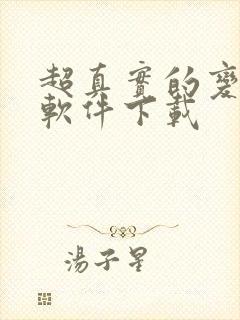 超真實的變
軟件下載
湯子星